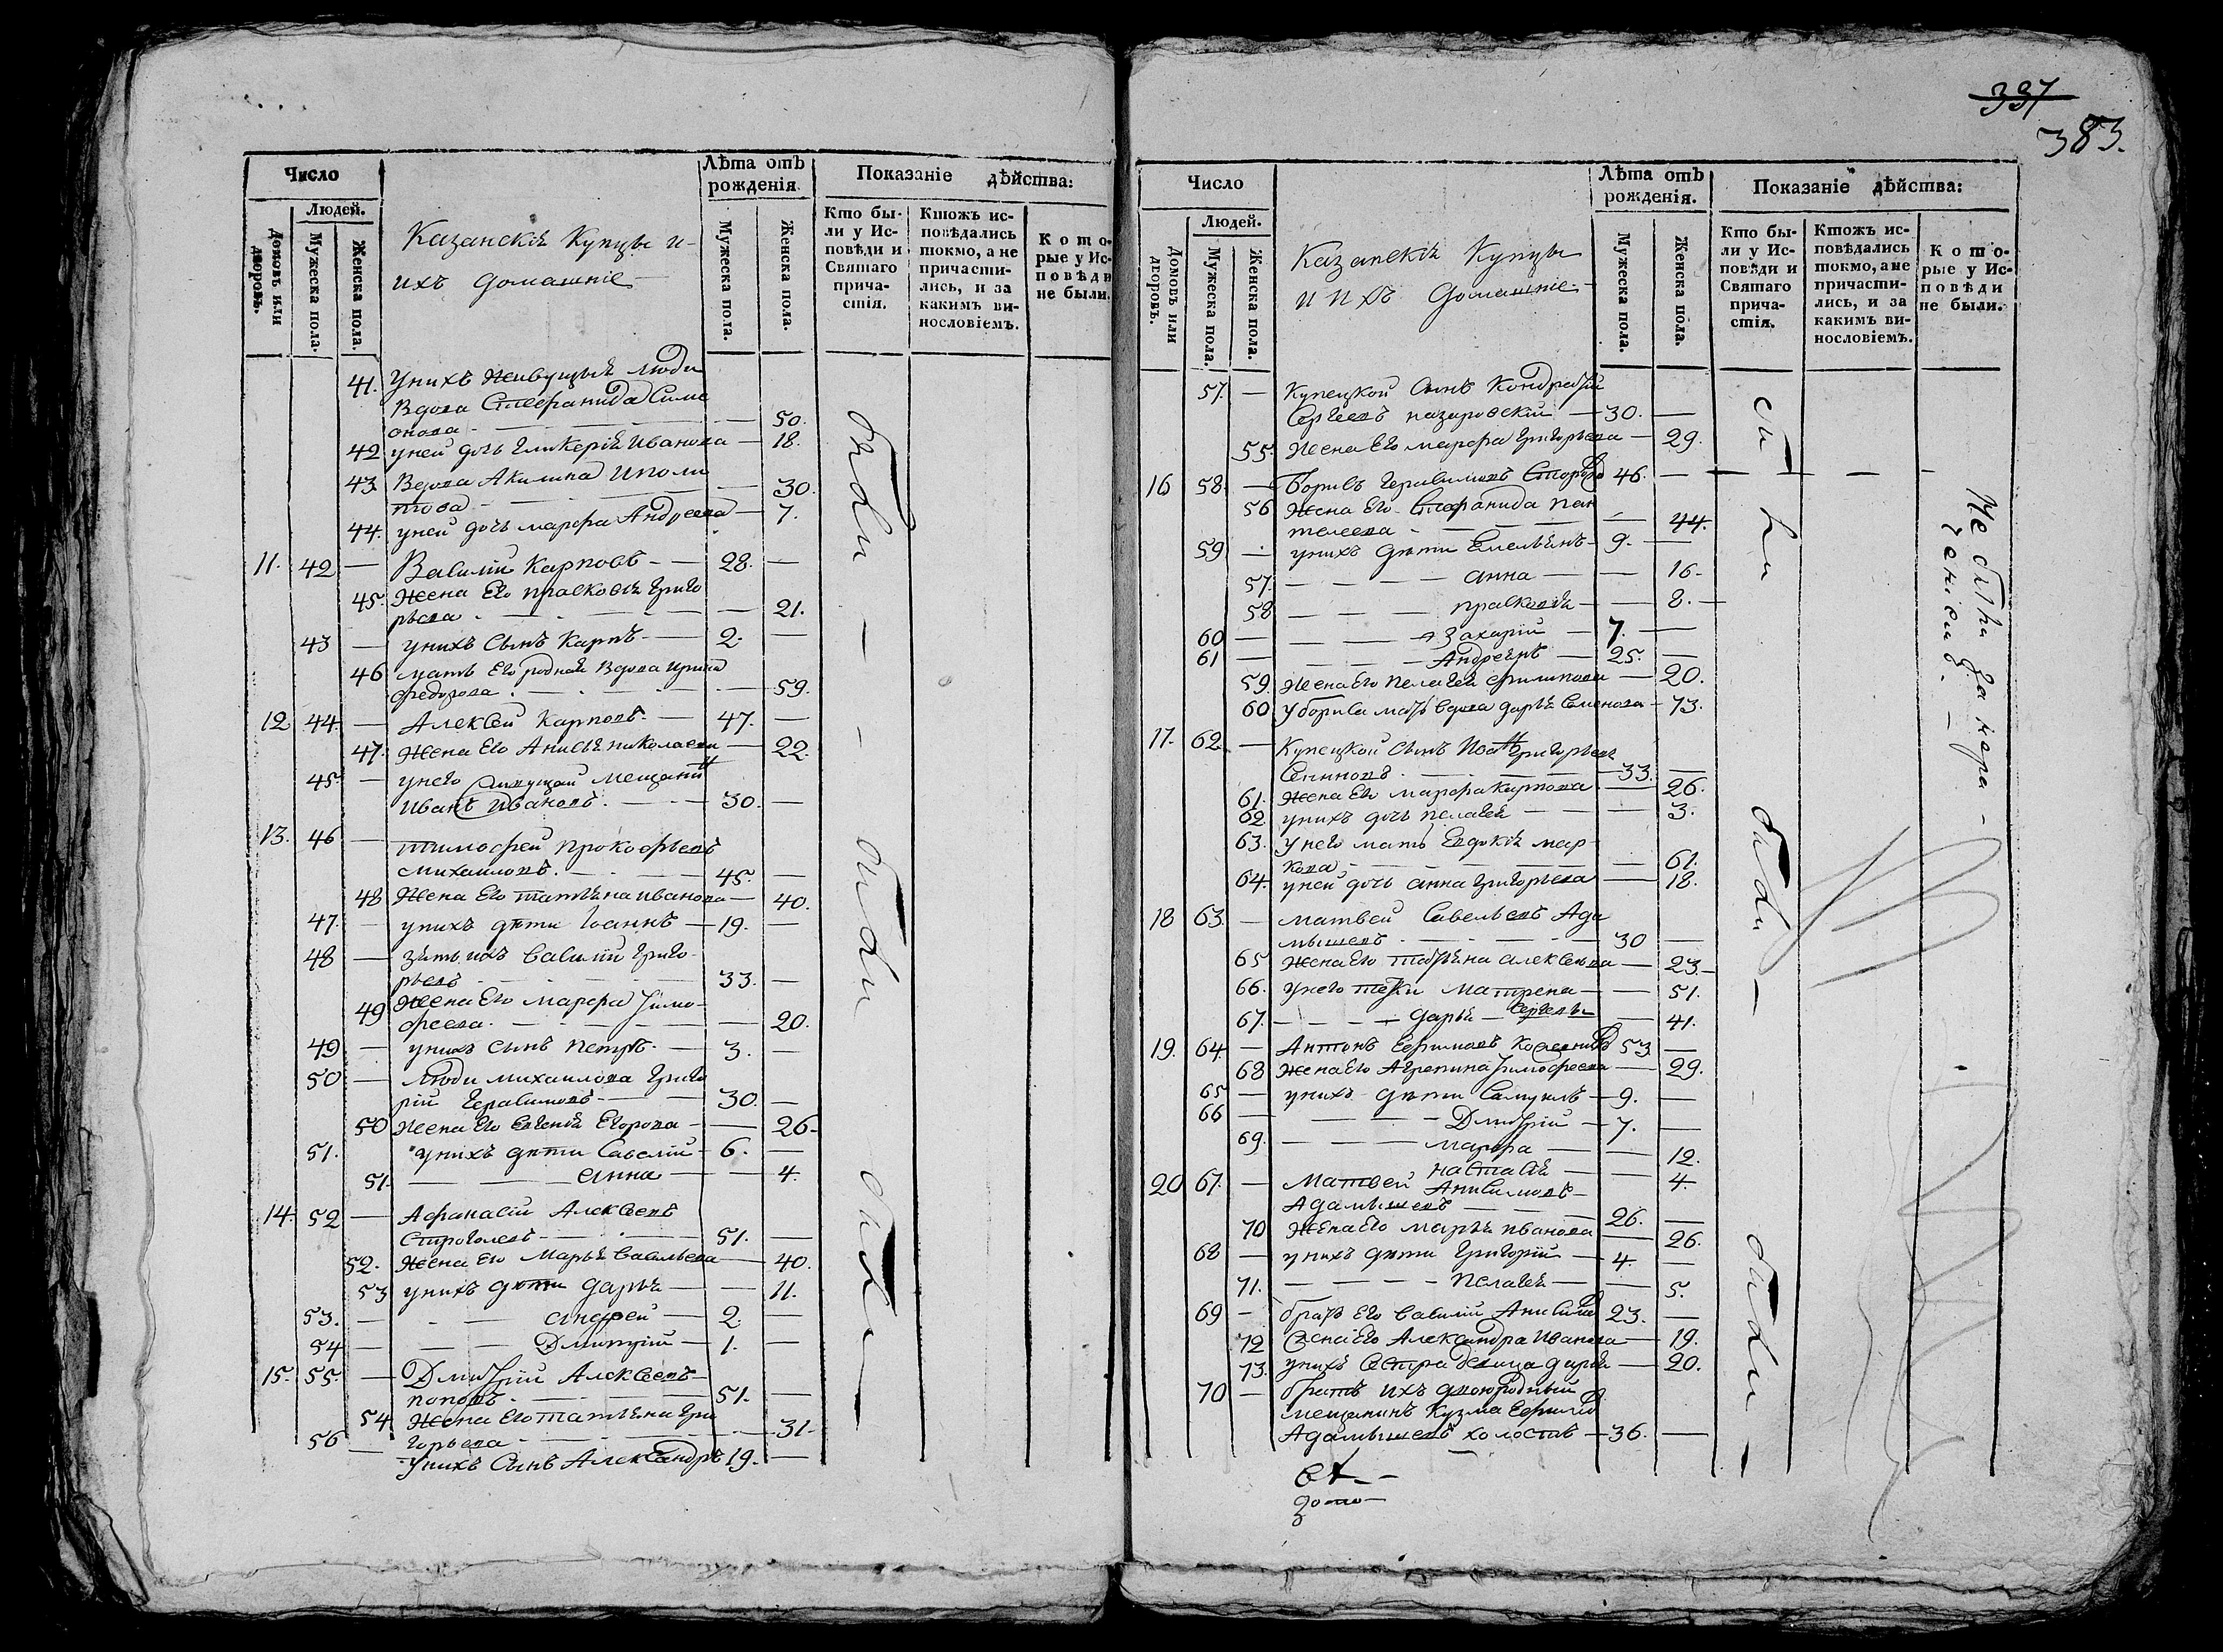 337
383.
Число
Людей.
Домовъ или дворовъ.
Мужеска пола.
Женска пола.
Казанскія Купцы и
ихъ домашніе
Лѣта отъ
рожденія.
Мужеска пола.
Женска пола.
Показаніе дѣйства:
Кто бы-
ли у Ис-
повѣди и
Святаго
прича-
стія.
Ктожъ ис-
повѣдались
токмо, а не
причасти-
лись, и за
какимъ ви-
нословіемъ.
Кото-
рые у Ис-
повѣди
не были.
41. Унихъ живущыя люди
Вдова Стефанида Симе
онова 50.
42 уней дочь Гликерія Иванова 18.
43 Вдова Акилина Иполи
това 30.
44. уней дочь марфа Андреева 7.
11. 42 Василій Карповъ 28.
45. Жена Его прасковія Григо
рьева 21.
43 унихъ Сынъ Карпъ 2.
46 мать Его родная Вдова Ирина
федорова 59.
12 44. Алексѣй Карповъ 47.
47. Жена Его Анисья николаева 22.
45. унего живущей Мещанин
Иванъ Ивановъ. 30.
13. 46 тимофей Прокофьевъ
михаиловъ. 45.
48 Жена Его татьяна иванова 40.
47. унихъ дѣти Іоаннъ 19.
48 зять ихъ Василій Григо
рьевъ 33.
49 Жена Его Марфа Тимо-
феева. 20.
49 унихъ сынъ Петръ 3.
50 люди михаилова Григо
рій Герасимовъ 30.
50 Жена Его Евгенія Егорова 26
51. унихъ дѣти Савелій 6.
51. Анна 4.
14. 52 Афанасій Алексѣевъ
Строголевъ 51.
52. Жена Его Марья Васильева 40.
53 унихъ дѣти дарья 11.
53. Андрей 2.
54 Дмитрій 1.
15. 55. Дмитрій Алексѣевъ
поповъ. 51.
54 Жена Его татьяна Гри
горьева 31.
56 Унихъ Сынъ Александръ 19.
были
были
были
Число
Людей.
Домовъ или дворовъ.
Мужеска пола.
Женска пола.
Казанскія Купцы
и ихъ домашніе
Лѣта отъ
рожденія.
Мужеска пола.
Женска пола.
Показаніе дѣйства:
Кто бы-
ли у Ис-
повѣди и
Святаго
прича-
стія.
Ктожъ ис-
повѣдались
токмо, а не
причасти-
лись, и за
какимъ ви-
нословіемъ.
Кото-
рые у Ис-
повѣди
не были.
57. Купецкой Сынъ Кондратій
Сергеевъ назаровскій 30.
55. Жена Его марфа Григорьева 29.
16 58. Борисъ Герасимовъ 46.
56 Жена Его Стефанида пан
телеева 44.
59 унихъ дѣти Емельянъ 9.
57. анна 16.
58 прасковія 8.
60 Захарій 7.
61 Андреянъ 25.
59. Жена Его пелагея филипова 20.
60 У бориса мать вдова дарья Семенова 73.
17. 62. Купецкой сынъ Григорьевъ
33.
61. Жена Его марфа Карпова 26.
62 унихъ дочь пелагея 3.
63. унего мать Евдокія мар
кова 61.
64. уней дочь анна Григорьева 18.
18 63. матвей Савельевъ Ада
мышевъ 30
65 Жена Его татьяна алексѣева 23.
66. унего тетки матрена 51.
67. дарья Сергеевы 41.
19. 64. Антонъ Ефимовъ 53
68 Жена Его Агрепина Тимофеева 29.
65 унихъ дѣти Самуилъ 9.
66 Дмитрій 7.
69. марфа 12.
настасія 4.
20 67. Матвей Анисимовъ
Адамышевъ 26.
70 Жена Его марья иванова 26.
68 унихъ дѣти Григорій 4.
71. пелагея 5.
69 братъ Его василій Анисимов 23.
72 Жена Его Александра Иванова 19.
73. унихъ Сестра девица дарья 20.
70 братъ ихъ двоюродный
мещанинъ Кузма Ефимов
Адамышевъ холостъ 36.
были
были
были
Не были за нера-
ченіемъ.